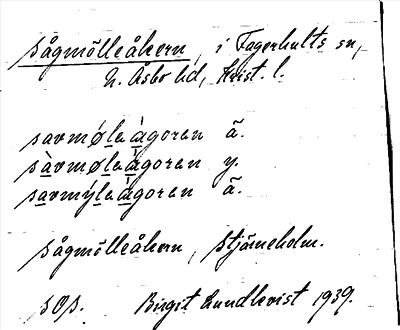 Sågmölleåkern, i Fagerhults sn,
N. Åsbo hd, Krist. l.
savmøleàgoren ä.
sàvmøleàgoren y.
savmýleàgoren ä.
Sågmölleåkern, Stjärneholm.
SOS. Birgit Lundkvist 1939.